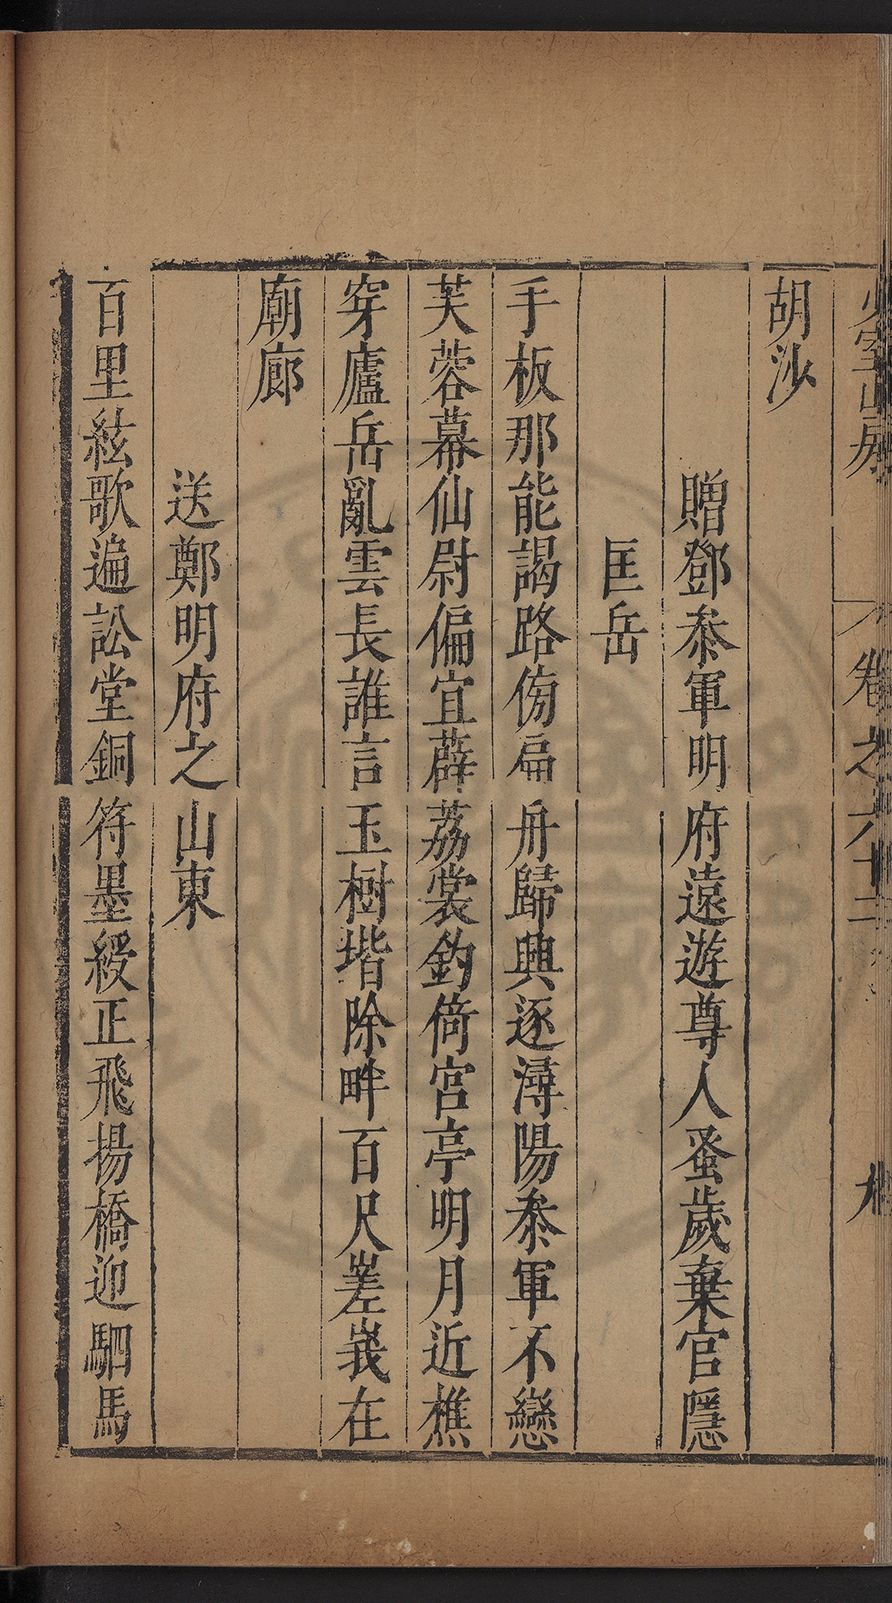 少室山房 卷之六十二 九
胡沙
贈鄧叅軍明府遠遊尊人蚤歲棄官隱
匡岳
手板那能謁路傍扁舟歸興逐潯陽叅軍不戀
芙蓉幕仙尉偏宜薜荔裳釣倚宮亭明月近樵
穿廬岳亂雲長誰言玉樹堦除畔百尺嵳峩在
廟廊
送鄭明府之山東
百里絃歌遍訟堂銅符墨綬正飛揚橋迎駟馬